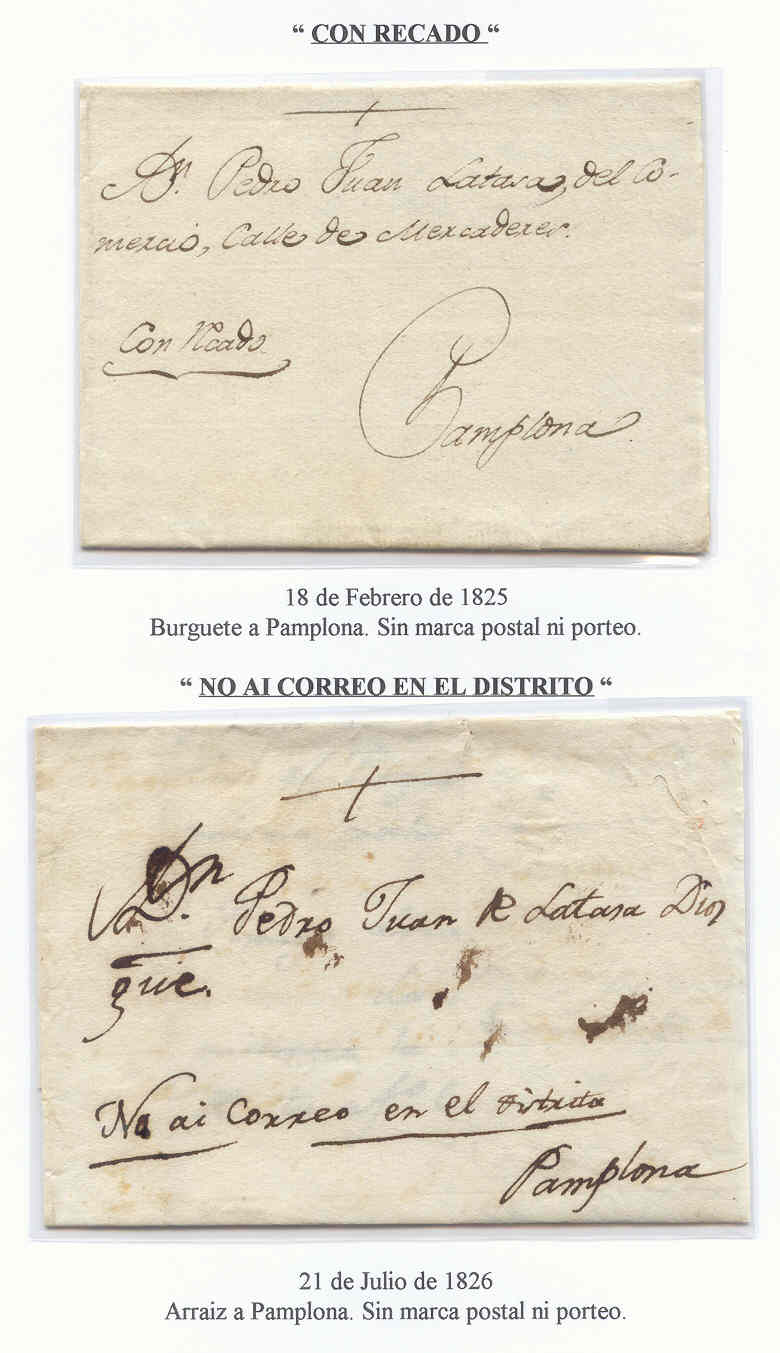 “ CON RECADO “
A Dn. Pedro Juan Latasa, del Co-
mercio, Calle de Mercaderes.
Con Rcado
Pamplona
18 de Febrero de 1825
Burguete a Pamplona. Sin marca postal ni porteo.
“ NO AI CORREO EN EL DISTRITO “
A Dn. Pedro Juan de Latasa Dios
gue.
No ai Correo en el distrito
Pamplona
21 de Julio de 1826
Arraiz a Pamplona. Sin marca postal ni porteo.